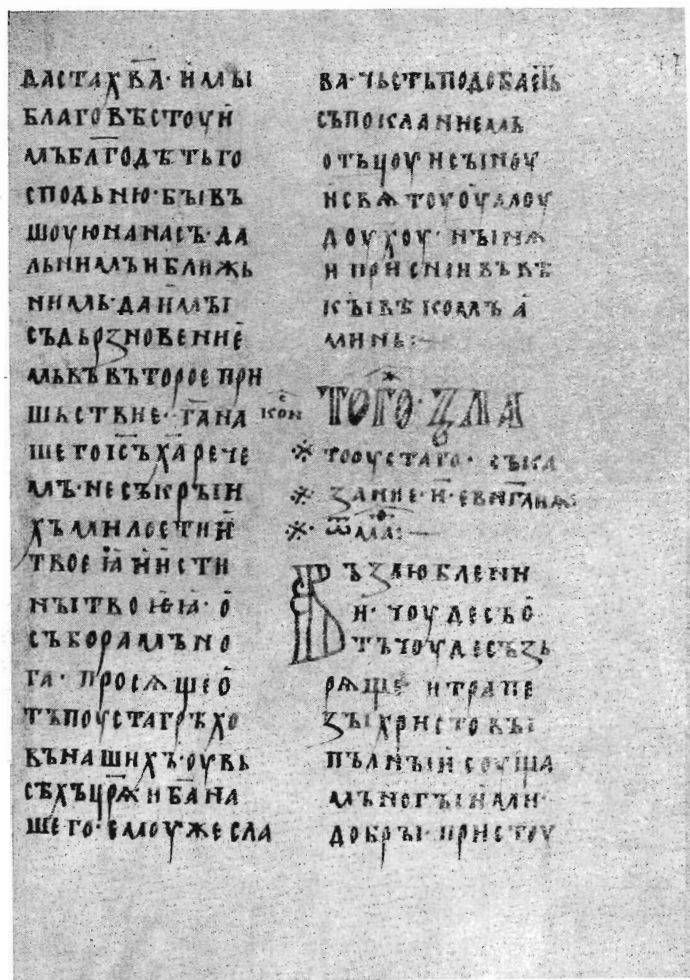 васта хв҃а· и мы
благовѣстоуи
мъ благодѣть го
сподьню· бывъ
шоую на насъ· да
льнимъ и ближь
нимь· да и мы
съ дьрзновение
мь къ въторое при
шьствие· га҃ на
шего іс҃ъ ха҃ рече
мъ· не съкрыи
хъ милостии
твоеіа и исти
ны твоіеіа· о
съборамъно
га· просѧще о
тъпоуста грѣхо
въ нашихъ· оу вь
сѣхъ цр҃ѧ и ба҃ на
шего· емоу же сла
ва· чьсть подобаеть
съ поклание мь
отьцоу и сыноу
и свѧтоуоумоу
доухоу· и нынѧ
и присно и въ вѣ
кы вѣкомъ а
минь:~
кон҃
того· зла
тооустаго· съка
зание· и· еван҃глиѧ:
ѿ ма:~
Възлюблени
и· чоудесъ о
тъ чоудесъ зь
рѧще и трапе
зы христовы
пълныи соуща
мъногы имали·
добры· пристоу